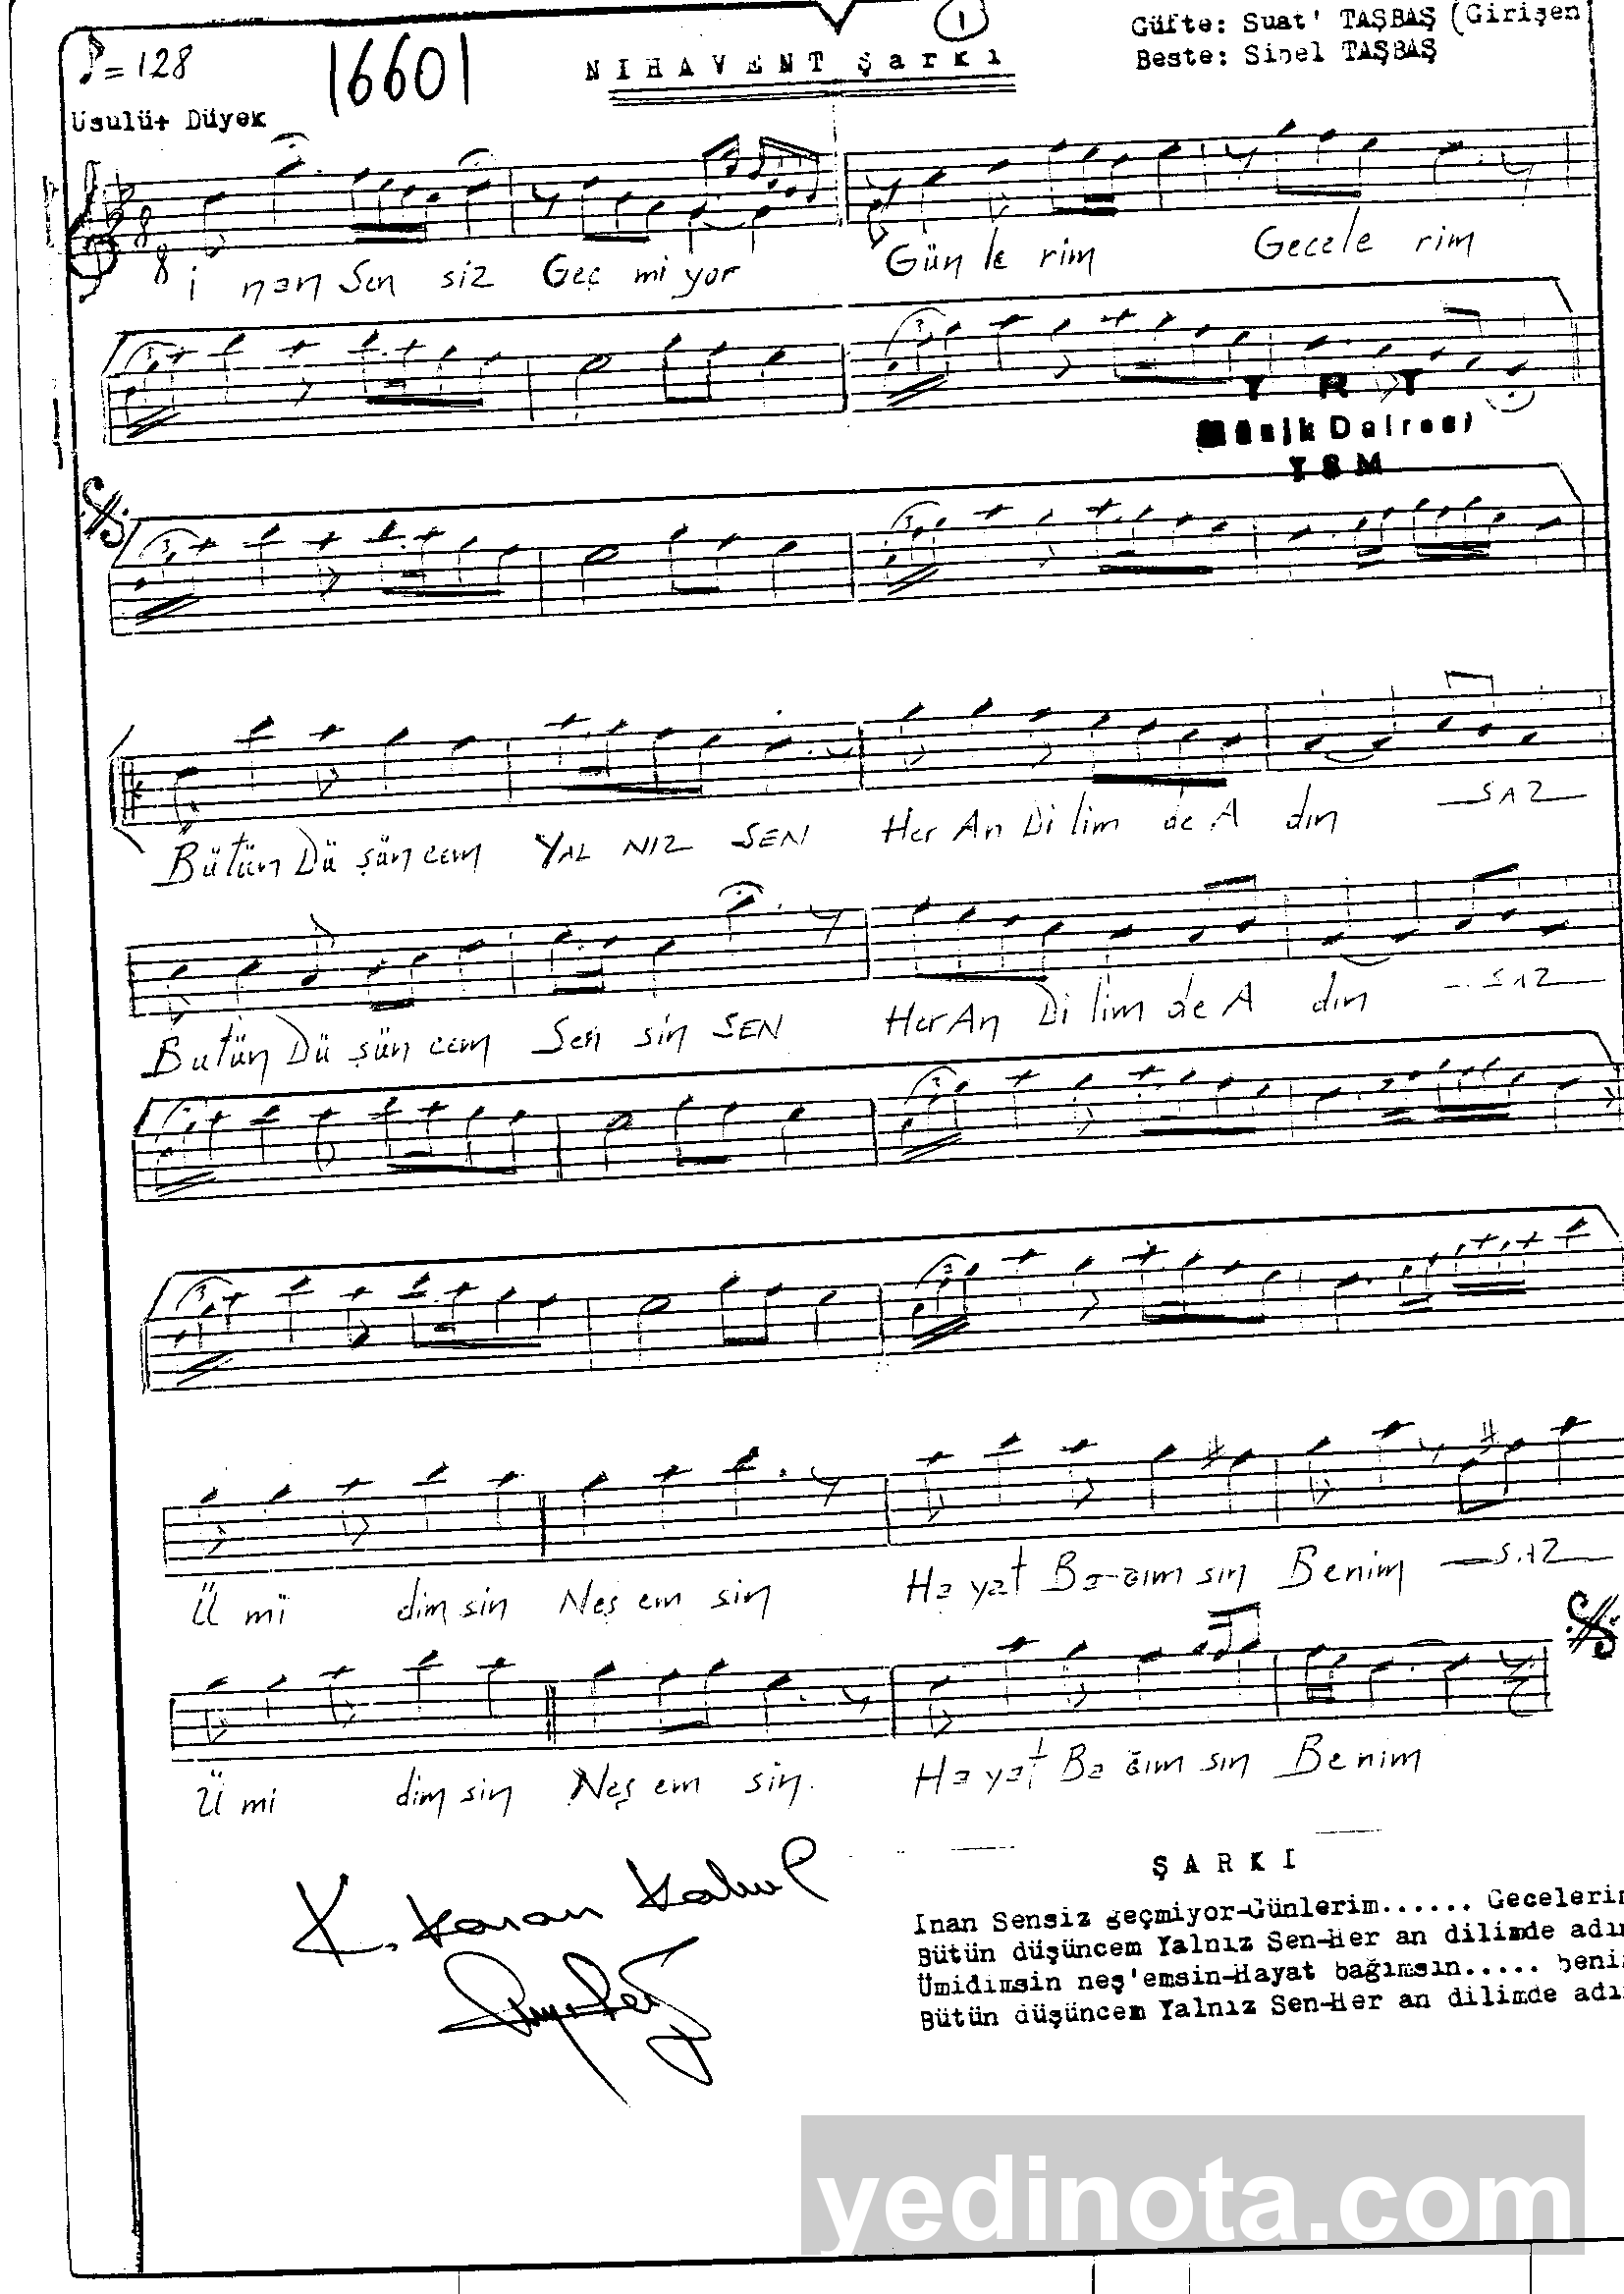 1
Güfte: Suat' TAŞBAŞ (Girişen
♪=128
16601
NIHAVENT Şarkı
Beste: Sibel TAŞBAŞ
Usulü+ Düyek
8
8
i nan Sen siz Geç mi yor Gün le rim Gecele rim
3 3
T R T
Müzik Dairesi
TSM
3 3
Bütün Dü şün cem YAL NIZ SEN Her An Di lim de A dın SAZ
Bütün Dü şün cem Sen sin SEN Her An Di lim de A dın SAZ
3
3 3
Ü mi dim sin Neş em sin Ha yat Ba ğım sın Benim SAZ
Ü mi dim sin Neş em sin. Ha yat Ba ğım sın Benim
ŞARKI
Inan Sensiz geçmiyor-Günlerim...... Gecelerim
Bütün düşüncem Yalnız Sen-Her an dilimde adı
Ümidimsin neş'emsin-Hayat bağımsın..... beni
Bütün düşüncem Yalnız Sen-Her an dilimde adı
yedinota.com